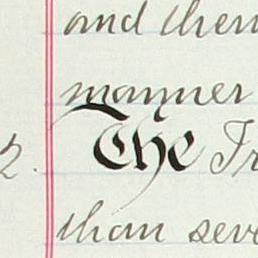 and then
manner
2. The Tr
than seve